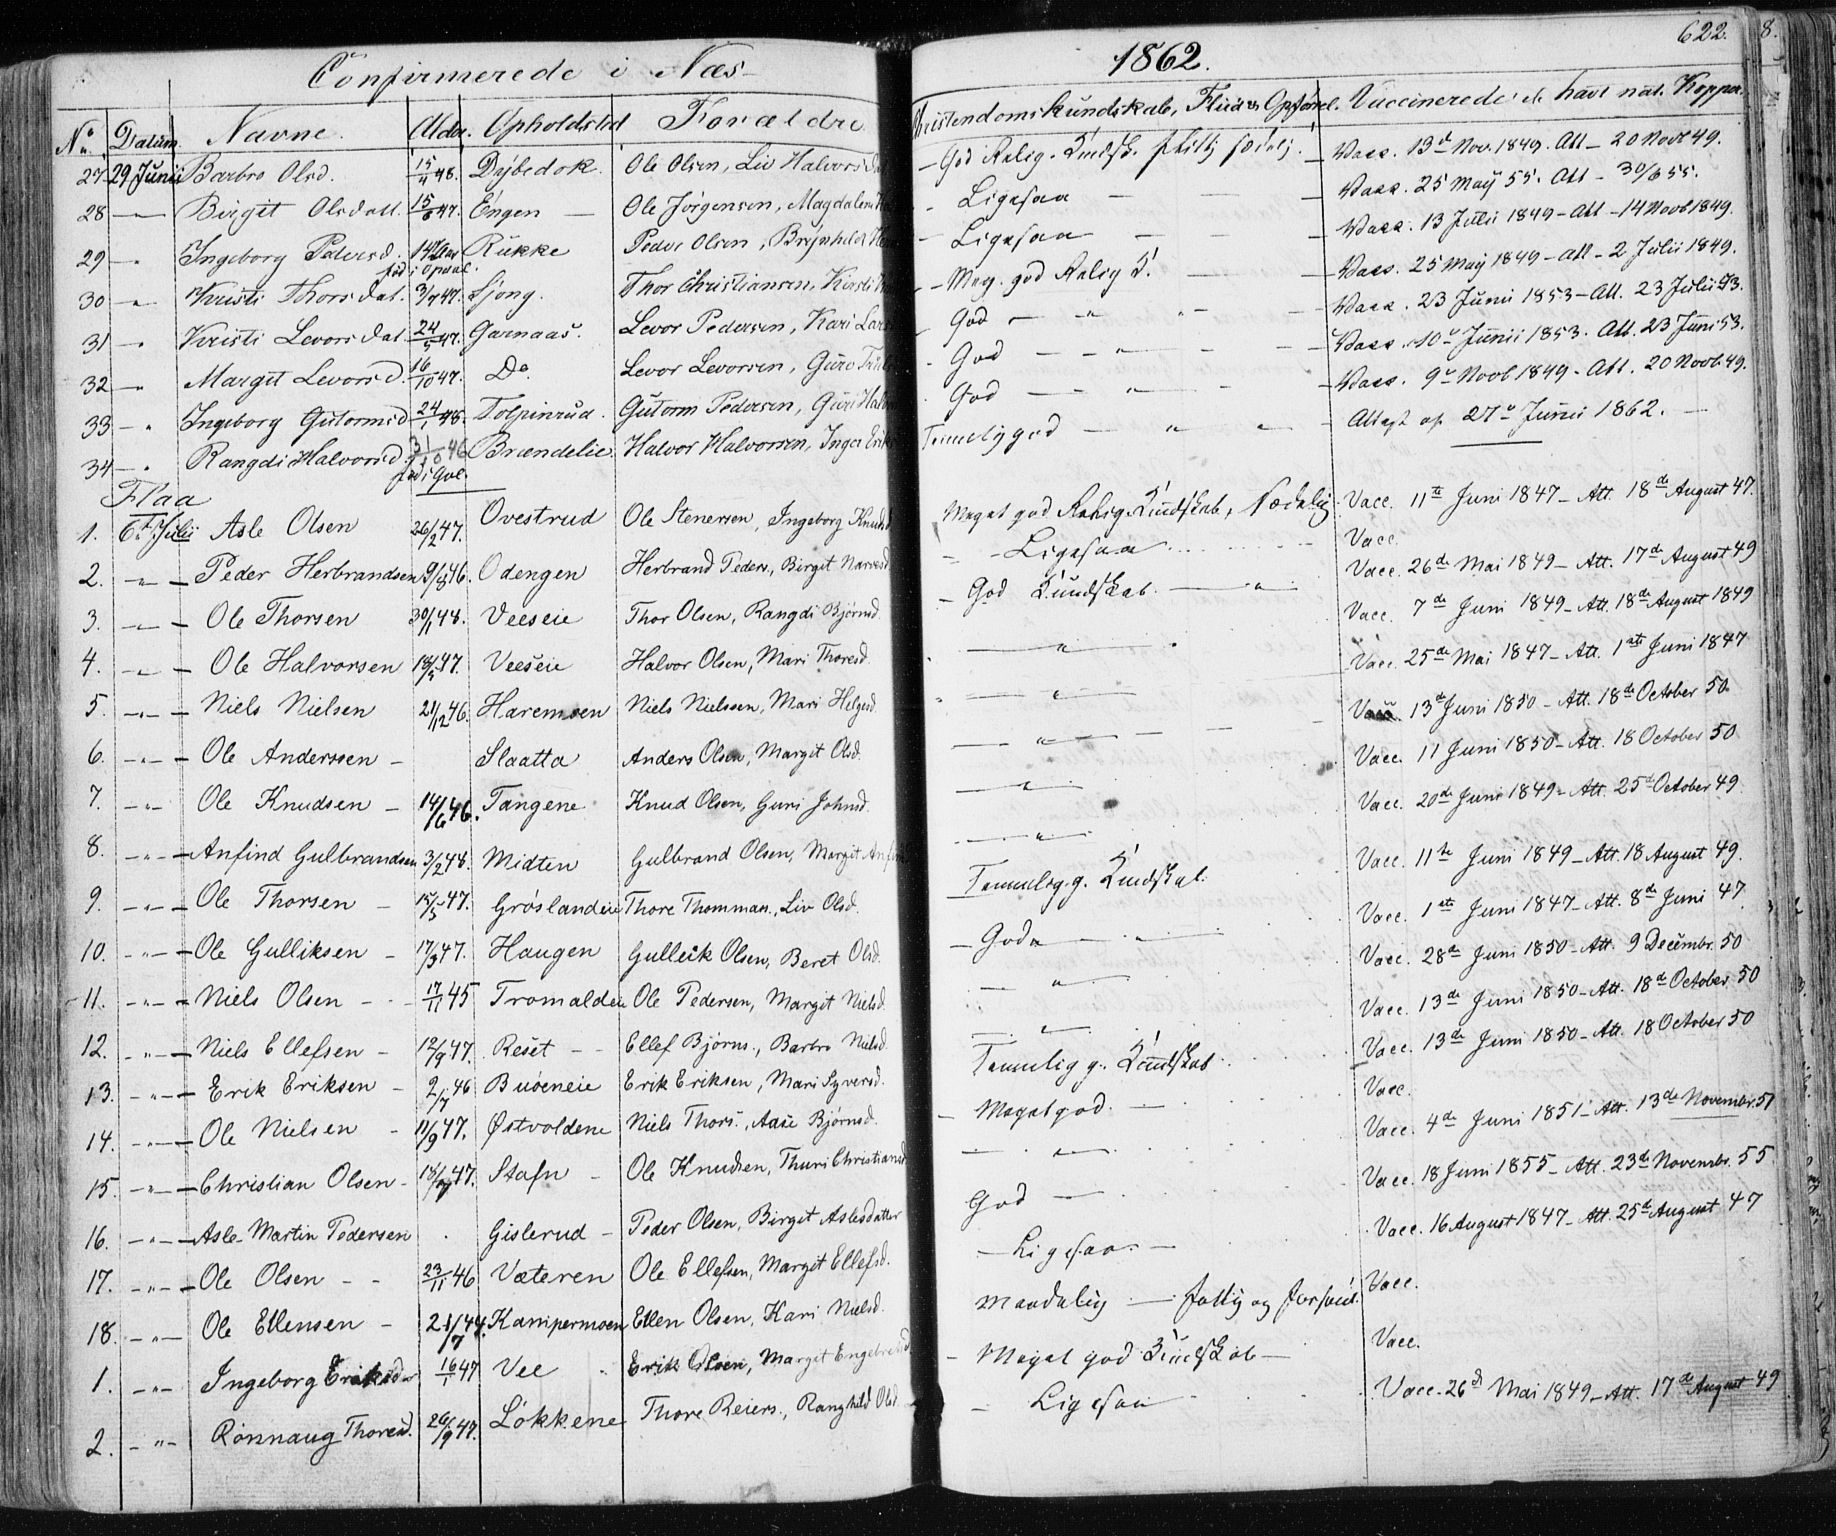 Confirmerede i Næs 1862. 622.
No Datum. Navne. Alder. Opholdsted Forældre Christendomskundskab, Flid og Opførsel. Vaccinerede el. havt nat. Kopper
27 29 Junii Barbro Olsd. 15/11 48. Dybedok. Ole Olsen, Liv Halvorsdat - God Relig. Kundsk. Vacc. 13d Nov. 1849. Att - 20 Novb 49.
28 -"- Birgit Olsdatt. 15/8 47. Engen - Ole Jörgensen, Magdalena - Ligesaa - Vacc. 25 May 55. Att - 30/6 55.
29 -"- Ingeborg Pedersd. Rukke Peder Olsen, Brynhild - Ligesaa - Vacc. 13 Julii 1849 - Att - 14 Novb 1849.
född i Opdal.
30 -"- Kristi Thorsdat. 3/7 47. Ljong. Thor Christiansen, Kirsti - Meg. god Relig K. - Vacc. 25 May 1849 - Att - 2 Julii 1849.
31 -"- Kristi Levorsdat. 24/5 47. Garnaas. Levor Pedersen, Kari Lars - God - " - Vacc. 23 Junii 1853 - Att. 23 Julii 53.
32 -"- Margit Levorsd. 16/10 47. Do. Levor Levorsen, Guro - God - " - Vacc. 10d Junii 1853. Att. 23 Juni 53.
33 -"- Ingeborg Gutormsd 24/1 48. Tolpinrud. Gutorm Pedersen, Guri Halv - God - " - Vacc. 9d Novb 1849 - Att. 20 Novb 49.
34 -"- Rangdi Halvorsd. 31/10 46 Brændelie. Halvor Halvorsen, Inger Erik Temmelig god - " - Attest af 27d Junii 1862. -
född i Gol.
Flaa
1. 6te Julii Asle Olsen 26/2 47. Ovestrud Ole Stenersen, Ingeborg Knudsd Meget god Relig. Kundskab, Sædelig Vacc. 11te Juni 1847 - Att. 18de August 47.
2. -"- Peder Herbrandsen 9/8 46. Odengen Herbrand Peders., Birgit Narvesd. - Ligesaa - Vacc.
3. -"- Ole Thorsen 30/1 48. Veeseie Thor Olsen, Rangdi Björnsd. - God Kundskab. - " - Vacc. 26de Mai 1849 - Att. 17de August 49
4. -"- Ole Halvorsen 18/5 47. Veeseie Halvor Olsen, Mari Thoresd. - " - Vacc. 7de Juni 1849 - Att. 18de August 1849
5. -"- Niels Nielsen 21/12 46. Haremoen Niels Nielssen, Mari Helgesd. - " - Vacc. 25de Mai 1847 - Att. 1ste Juni 1847
6. -"- Ole Anderssen - Slaatta Anders Olsen, Margit Olsd. - " - Vacc. 13de Juni 1850 - Att. 18de October 50
7. -"- Ole Knudsen - 14/6 46. Tangene Knud Olsen, Guri Johnsd. - " - Vacc. 11 Juni 1850 - Att. 18 October 50
8. -"- Anfind Gulbrandsen 3/2 48. Midten Gulbrand Olsen, Margit Anfin - " - Vacc. 20de Juni 1849 - Att. 25d October 49
9. -"- Ole Thorsen - 15/5 47. Gröslandeie Thore Thomman., Liv Olsd. Temmelig g. Kundskab. Vacc. 11te Juni 1849 - Att. 18 August 49.
10. -"- Ole Gulliksen - 17/3 47. Haugen Gulleik Olsen, Beret Olsd. - God - " - Vacc. 1ste Juni 1847 - Att. 8de Juni 47
11. -"- Niels Olsen - 17/11 45 Tromalden Ole Pedersen, Margit Nielsd. - " - Vacc. 28de Juni 1850 - Att. 9 Decembr. 50
12. -"- Niels Ellefsen - 12/9 47. Reset - Ellef Bjørns., Barbro Nielsd. - " - Vacc. 13de Juni 1850 - Att. 18d October 50
13. -"- Erik Eriksen - 2/7 46 Buöeneie Erik Eriksen, Mari Syversd. Temmelig g. Kundskab. Vacc. 13de Juni 1850 - Att. 18 October 50
14. -"- Ole Nielsen - 11/9 47. Østvoldene Niels Thors., Aase Bjørnsd. - Meget god. - Vacc.
15. -"- Christian Olsen - 18/7 47. Stafn - Ole Knudsen, Thuri Christiansd. - " - Vacc. 4de Juni 1851 - Att. 13de Novembr. 51
16. -"- Asle Martin Pedersen Gislerud - Peder Olsen, Birgit Aslesdatter God - Vacc. 18 Juni 1855 - Att. 23de Novembr. 55
17. -"- Ole Olsen - 23/11 46 Væteren Ole Ellefsen, Margit Ellefsd. - Ligesaa. - Vacc. 16 August 1847 - Att. 25d August 47
18. -"- Ole Ellensen - 21/7 44. Kampermoen Ellen Olsen, Kari Nielsd. Maadelig - Vacc.
1. -"- Ingeborg Eriksdr 16/1 47 Vee Erik Olsen, Margit Engebretsd. - Meget god Kundskab - Vacc.
2. -"- Rönnaug Thoresd. 26/9 47. Lökkene Thore Reiers., Ranghild Olsd. - Ligesaa Vacc. 26d Mai 1849 - Att. 17de August 49